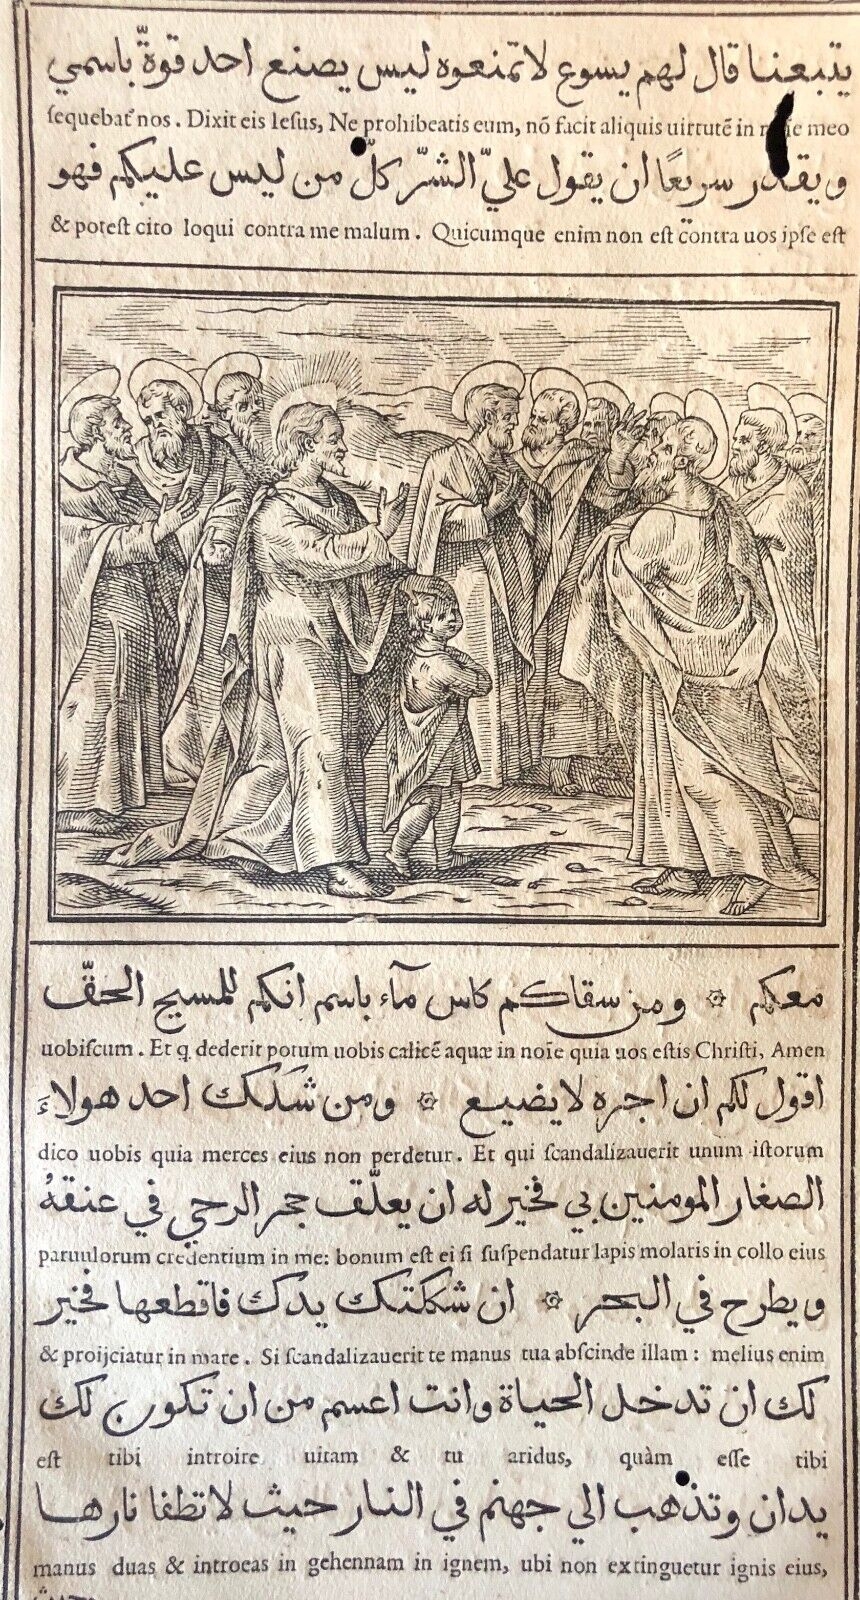 يتبعنا قال لهم يسوع لا تمنعوه ليس يصنع احد قوّة باسمي
sequebat̃ nos . Dixit eis Iesus, Ne prohibeatis eum, nõ facit aliquis uirtutẽ in meo
ويقدر سريعًا ان يقول عليّ الشرّ كلّ من ليس عليكم فهو
& potest cito loqui contra me malum . Quicumque enim non est contra uos ipse est
معكم ۞ ومن سقاكم كاس مآء باسم انكم للمسيح الحقّ
uobiscum . Et q dederit potum uobis calicẽ aquæ in noĩe quia uos estis Christi, Amen
اقول لكم ان اجره لا يضيع ۞ ومن شكك احد هولاء
dico uobis quia merces eius non perdetur . Et qui scandalizauerit unum istorum
الصغار المومنين بي فخير له ان يعلّق حجر الرحي في عنقهُ
paruulorum credentium in me: bonum est ei si suspendatur lapis molaris in collo eius
ويطرح في البحر ۞ ان شككتك يدك فاقطعها فخير
& proijciatur in mare . Si scandalizauerit te manus tua abscinde illam : melius enim
لك ان تدخل الحياة وانت اعسم من ان تكون لك
est tibi introire uitam & tu aridus, quàm esse tibi
يدان وتذهب الي جهنم في النار حيث لا تطفا نارها
manus duas & introeas in gehennam in ignem, ubi non extinguetur ignis eius,
حيث